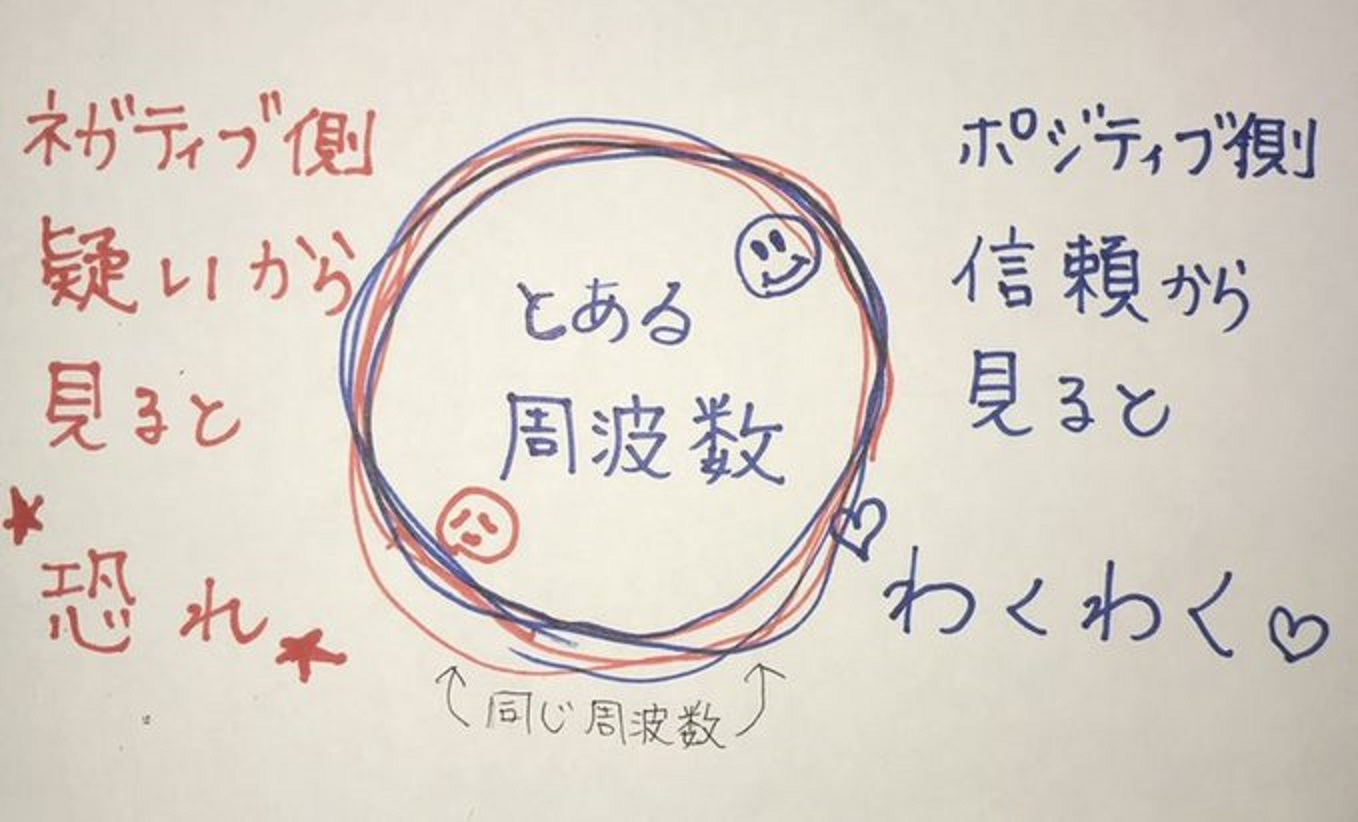 ネガティブ側
疑いから
見ると
恐れ
とある
周波数
ポジティブ側
信頼から
見ると
わくわく
同じ周波数